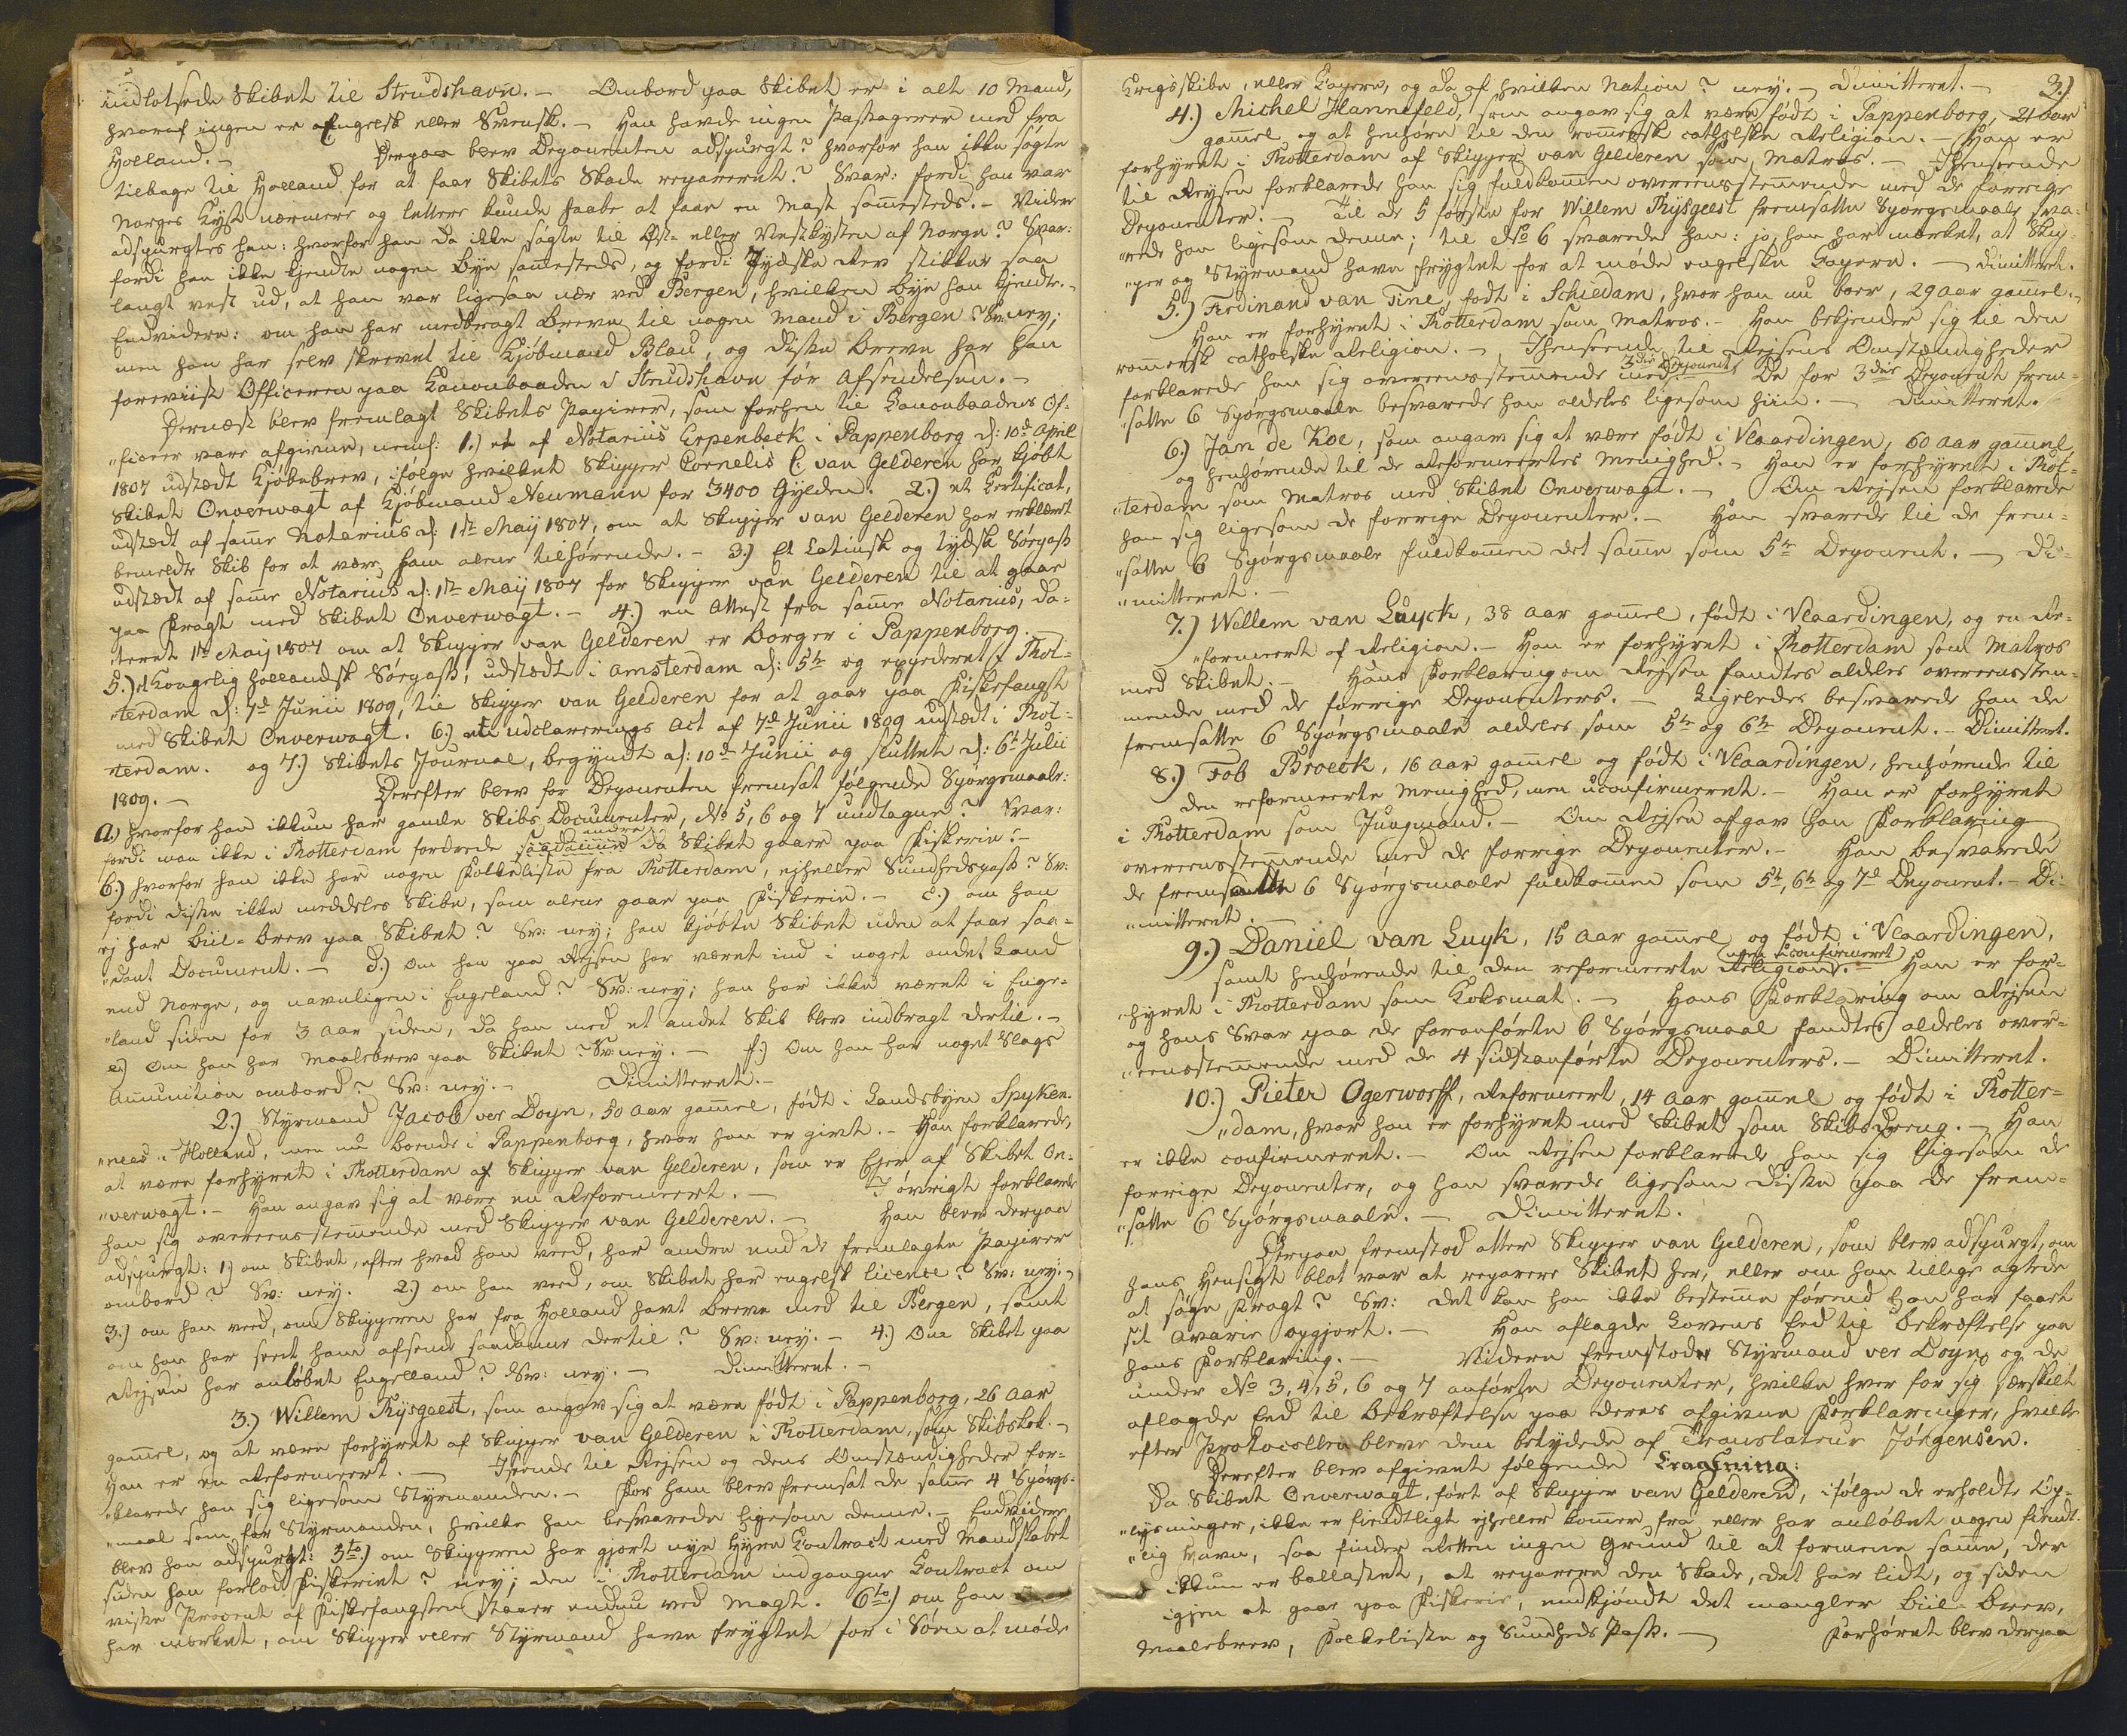 indlotsede Skibet til Strudshavn. – Ombord paa Skibet er i alt 10 Mand,
hvoraf ingen er Engelsk eller Svensk. – Han havde ingen Passagerer med fra
Holland. – Derpaa blev Deponenten adspurgt? hvorfor han ikke søgte
tilbage til Holland for at faae Skibets Skade repareret? Svar: fordi han var
Norges Kyst nærmere og lettere kunde haabe at faae en Mast sam̄esteds. – Videre
adspurgtes han: hvorfor han da ikke søgte til Øst- eller Vestkysten af Norge? Svar:
fordi han ikke kjendte nogen Bye sam̄esteds, og fordi Jydske Rev stikker saa
langt vest ud, at han var ligesaa nær ved Bergen, hvilken Bye han kjendte. –
Endvidere: om han har medbragt Breve til nogen Mand i Bergen? Sv: ney;
men han har selv skrevet til Kjøbmand Blau, og disse Breve har han
foreviist Officeren paa Canonbaaden i Strudshavn før Afsendelsen. –
Dernæst blev fremlagt Skibets Papirer, som forhen til Canonbaadens Of-
„ficeer vare afgivne, neml: 1.) et af Notarius Erpenbeck i Pappenborg d: 10d April
1807 udstædt Kjøbebrev, ifølge hvilket Skipper Cornelis C: van Gelderen har kjøbt
Skibet Onverwagt af Kjøbmand Neumann for 3400 Gylden. 2.) et Certificat,
udstædt af sam̄e Notarius d: 1te Maij 1807, om at Skipper van Gelderen har erklæret
bemeldte Skib for at være ham alene tilhørende. – 3.) Et Latinsk og tydsk Søepass
udstædt af sam̄e Notarius d: 1te Maij 1807 for Skipper van Gelderen til at gaae
paa Fragt med Skibet Onverwagt. – 4.) en Attest fra sam̄e Notarius, da-
„teret 1te Maij 1807 om at Skipper van Gelderen er Borger i Pappenborg.
5.) et Kongelig hollandsk Søepass, udstædt i Amsterdam d: 5te og expederet i Rot-
„terdam d: 7d Junii 1809, til Skipper van Gelderen for at gaae paa Fiskefangst
med Skibet Onverwagt. 6.) en udclarerings Act af 7d Junii 1809 udstædt i Rot-
„terdam. og 7.) Skibets Journal, begyndt d: 10d Junii og sluttet d: 6te Julii
1809. – Derefter blev for Deponenten fremsat følgende Spørgsmaale:
a.) hvorfor han ikkun har gamle Skibs Documenter, No 5, 6 og 7 undtagne? Svar:
fordi man ikke i Rotterdam fordrede saadanne andre da Skibet gaaer paa Fiskerie. –
b.) hvorfor han ikke har nogen Folkeliste fra Rotterdam, ejheller Sundhedspass? Sv:
fordi disse ikke meddeles Skibe, som alene gaae paa Fiskerie. – c.) om han
ej har Biil-brev paa Skibet? Sv: ney; han kjøbte Skibet uden at faae saa-
„dant Document. – d.) om han paa Rejsen har været ind i noget andet Land
end Norge, og navnligen i Engeland? Sv: ney; han har ikke været i Enge-
„land siden for 3 Aar siden, da han med et andet Skib blev indbragt dertil. –
e.) Om han har Maalebrev paa Skibet? Sv: ney. – f.) Om han har noget Slags
Am̄unition ombord? Sv: ney. – Dimitteret. –
2.) Styrmand Jacob ver Doyn, 50 Aar gam̄el, født i Landsbyen Spyken-
„nees i Holland, men nu boende i Pappenborg, hvor han er givt. – Han forklarede,
at være forhyret i Rotterdam af Skipper van Gelderen, som er Ejer af Skibet On-
„verwagt. – Han angav sig at være en Reformeert. – I øvrigt forklarede
han sig overeensstem̄ende med Skipper van Gelderen. – Han blev derpaa
adspurgt: 1.) om Skibet, efter hvad han veed, har andre end de fremlagte Papirer
ombord? Sv: ney. 2.) om han veed, om Skibet har engelsk licence? Sv: ney. –
3.) om han veed, om Skipperen har fra Holland havt Breve med til Bergen, samt
om han har seet ham afsende saadanne dertil? Sv: ney. – 4.) Om Skibet paa
Rejsen har anløbet Engelland? Sv: ney. – Dimitteret. –
3.) Willem Rijsgeest, som angav sig at være født i Pappenborg, 26 Aar
gam̄el, og at være forhyret af Skipper van Gelderen i Rotterdam, som Skibskok. –
Han er en Reformeert. – Iseende til Rejsen og dens Omstændigheder for-
„klarede han sig ligesom Styrmanden. – For ham blev fremsat de sam̄e 4 Spørgs-
„maal som for Styrmanden, hvilke han besvarede ligesom denne. – Endvidere
blev han adspurgt: 5to.) om Skipperen har gjort nye Hyre Contract med Mandskabet
siden han forlod Fiskeriet? ney; den i Rotterdam indgangne Contract om
visse Procent af Fiskefangsten staaer endnu ved Magt. 6to.) om han
har mærket, om Skipper eller Styrmand have frygtet for i Søen at møde
Krigsskibe, eller Capere, og da af hvilken Nation? ney. – Dimitteret. –
3.)
4.) Michel Hannefeld, som angav sig at være født i Pappenborg, 21 Aar
gam̄el og at henhøre til den romersk catholske Religion. – Han er
forhyret i Rotterdam af Skipper van Gelderen som Matros. – Ihenseende
til Reysen forklarede han sig fuldkom̄en overeensstem̄ende med de forrige
Deponenter. – Til de 5 første for Willem Rijsgeest fremsatte Spørgsmaale sva-
„rede han ligesom denne; til No 6 svarede han: jo, han har mærket, at Skip-
„per og Styrmand have frygtet for at møde engelske Capere. – Dimitteret.
5.) Ferdinand van Tine, født i Schiedam, hvor han nu boer, 29 Aar gam̄el. –
Han er forhyret i Rotterdam som Matros. – Han bekjender sig til den
romersk catholske Religion. – Ihenseende til Rejsens Omstændigheder
forklarede han sig overeensstem̄ende med 3die Deponent. De for 3die Deponent frem-
„satte 6 Spørgsmaale besvarede han aldeles ligesom hiin. – Dimitteret.
6.) Jan de Koe, som angav sig at være født i Vlaardingen, 60 Aar gam̄el,
og henhørende til de Reformeertes Menighed. – Han er forhyret i Rot-
„terdam som Matros med Skibet Onverwagt. – Om Rejsen forklarede
han sig ligesom de forrige Deponenter. – Han svarede til de frem-
„satte 6 Spørgsmaale fuldkom̄en det sam̄e som 5te Deponent. – Di-
„mitteret. –
7.) Willem van Luyck, 38 Aar gam̄el, født i Vlaardingen, og en Re-
„formeert af Religion. – Han er forhyret i Rotterdam som Matros
med Skibet. – Hans Forklaring om Rejsen fandtes aldeles overeensstem-
mende med de forrige Deponenters. – Ligeledes besvarede han de
fremsatte 6 Spørgsmaale aldeles som 5te og 6te Deponent. – Dimitteret.
8.) Fob Broeck, 16 Aar gam̄el og født i Vlaardingen, henhørende til
den reformeerte Menighed, men uconfirmeret. – Han er forhyret
i Rotterdam som Jungmand. – Om Rejsen afgav han Forklaring
overeensstem̄ende med de forrige Deponenter. – Han besvarede
de fremsatte 6 Spørgsmaale fuldkom̄en som 5te, 6te og 7de Deponent. – Di-
„mitteret. –
9.) Daniel van Luyk, 15 Aar gam̄el og født i Vlaardingen,
samt henhørende til den reformeerte Religion, men uconfirmeret. – Han er for-
„hyret i Rotterdam som Koksmat. – Hans Forklaring om Rejsen
og hans Svar paa de foranførte 6 Spørgsmaal fandtes aldeles over-
„eensstem̄ende med de 4 sidstanførte Deponenters. – Dimitteret.
10.) Pieter Ogerworff, Reformeert, 14 Aar gam̄el og født i Rotter-
„dam, hvor han er forhyret med Skibet som Skibsdreng. – Han
er ikke confirmeret. – Om Rejsen forklarede han sig ligesom de
forrige Deponenter, og han svarede ligesom disse paa de frem-
„satte 6 Spørgsmaale. – Dimitteret.
Derpaa fremstod atter Skipper van Gelderen, som blev adspurgt, om
hans Hensigt blot var at reparere Skibet her, eller om han tillige agtede
at søge Fragt? Sv: det kan han ikke bestem̄e førend han har faaet
sit Avarie opgjort. – Han aflagde Lovens Eed til Bekræftelse paa
hans Forklaring. – Videre fremstode Styrmand ver Doyn og de
under No 3, 4, 5, 6 og 7 anførte Deponenter, hvilke hver for sig særskilt
aflagde Eed til Bekræftelse paa deres afgivne Forklaringer, hvilke
efter Protocollen bleve dem betydede af Translateur Jørgensen.
Derefter blev afgivet følgende
Da Skibet Onverwagt, ført af Skipper van Gelderen, ifølge de erholdte Op-
„lysninger, ikke er fiendtligt ejheller kom̄er fra eller har anløbet nogen fiendt-
„lig Havn, saa finder Retten ingen Grund til at formene sam̄e, der
ikkun er ballastet, at reparere den Skade, det har lidt, og siden
igjen at gaae paa Fiskerie, endskjøndt det mangler Biil-Brev,
Maalebrev, Folkeliste og Sundheds Pass. – Forhøret blev derpaa